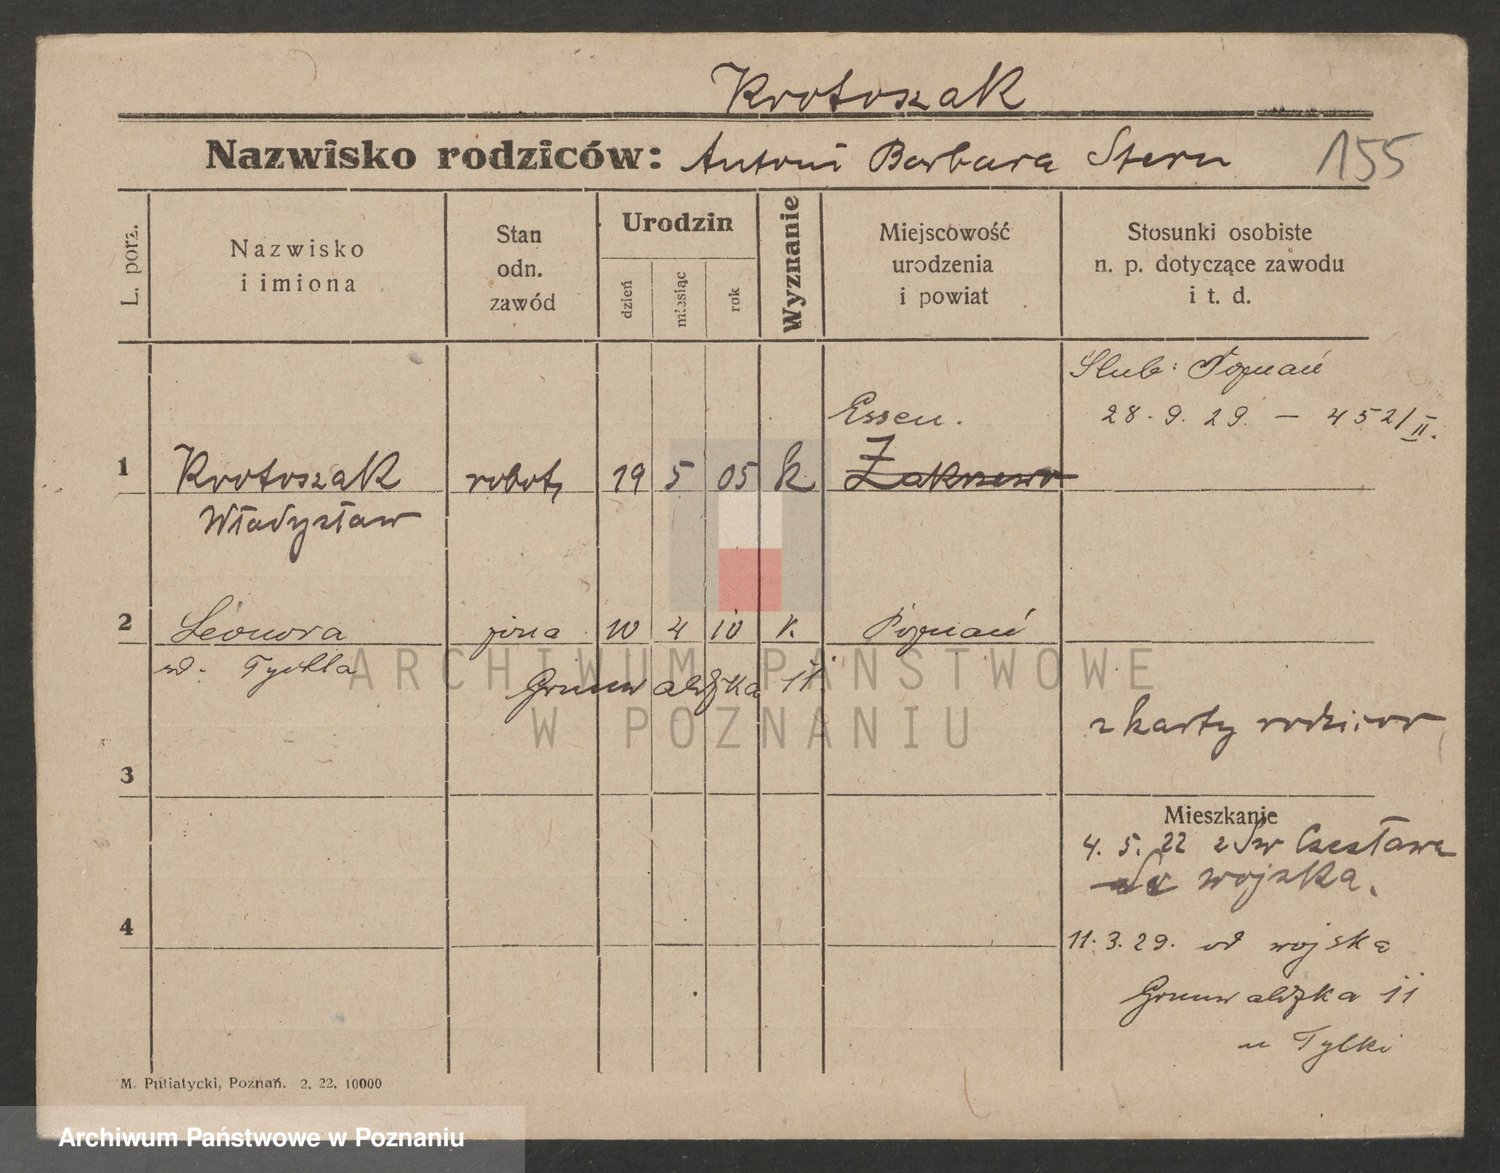 Krotoszak
Nazwisko rodziców: Antoni Barbara Stern 155
L. porz.
Nazwisko
i imiona
Stan
odn.
zawód
Urodzin
dzień
miesiąc
rok
Wyznanie
Miejscowość
urodzenia
i powiat
Stosunki osobiste
n. p. dotyczące zawodu
i t. d.
Ślub: Poznań
28. 9. 29. - 452/II.
Essen.
1 Krotoszak robotn 19 5 05 k Zakrzewo
Władysław
2 Leonora żona 10 4 10 k. Poznań
Grunwaldzka 11
z karty rodziców
3
Mieszkanie
4. 5. 22 z Św Czesława
do wojska.
4
11. 3. 29. od wojska
Grunwaldzka 11
u Tylki
M. Putiatycki, Poznań. 2. 22. 10000
ARCHIWUM PAŃSTWOWE
W POZNANIU
Archiwum Państwowe w Poznaniu